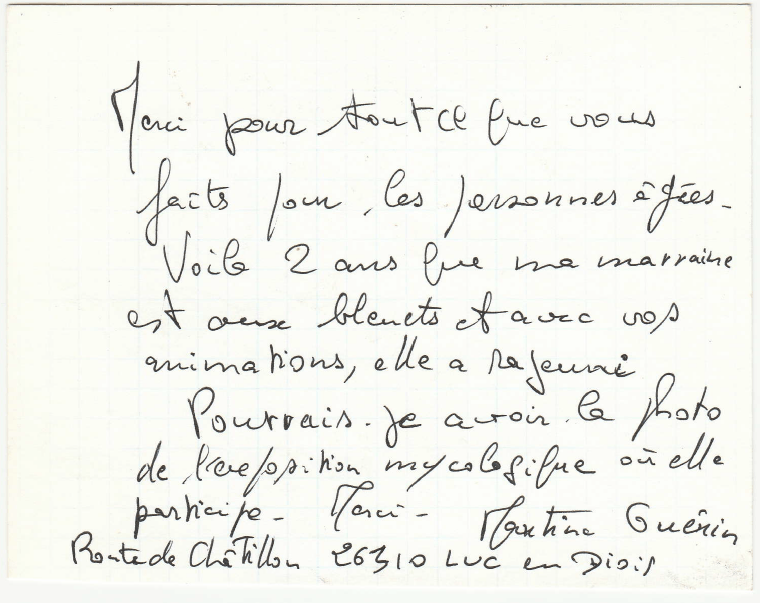 Merci pour tout ce que vous
faits pour les personnes âgées -
Voila 2 ans que ma marraine
est aux bleuets et avec vos
animations, elle a rajeuni
Pourrais-je avoir la photo
de l'exposition mycologique où elle
participe - Merci -
Martine Guérin
Route de Châtillon 26310 LUC en Diois